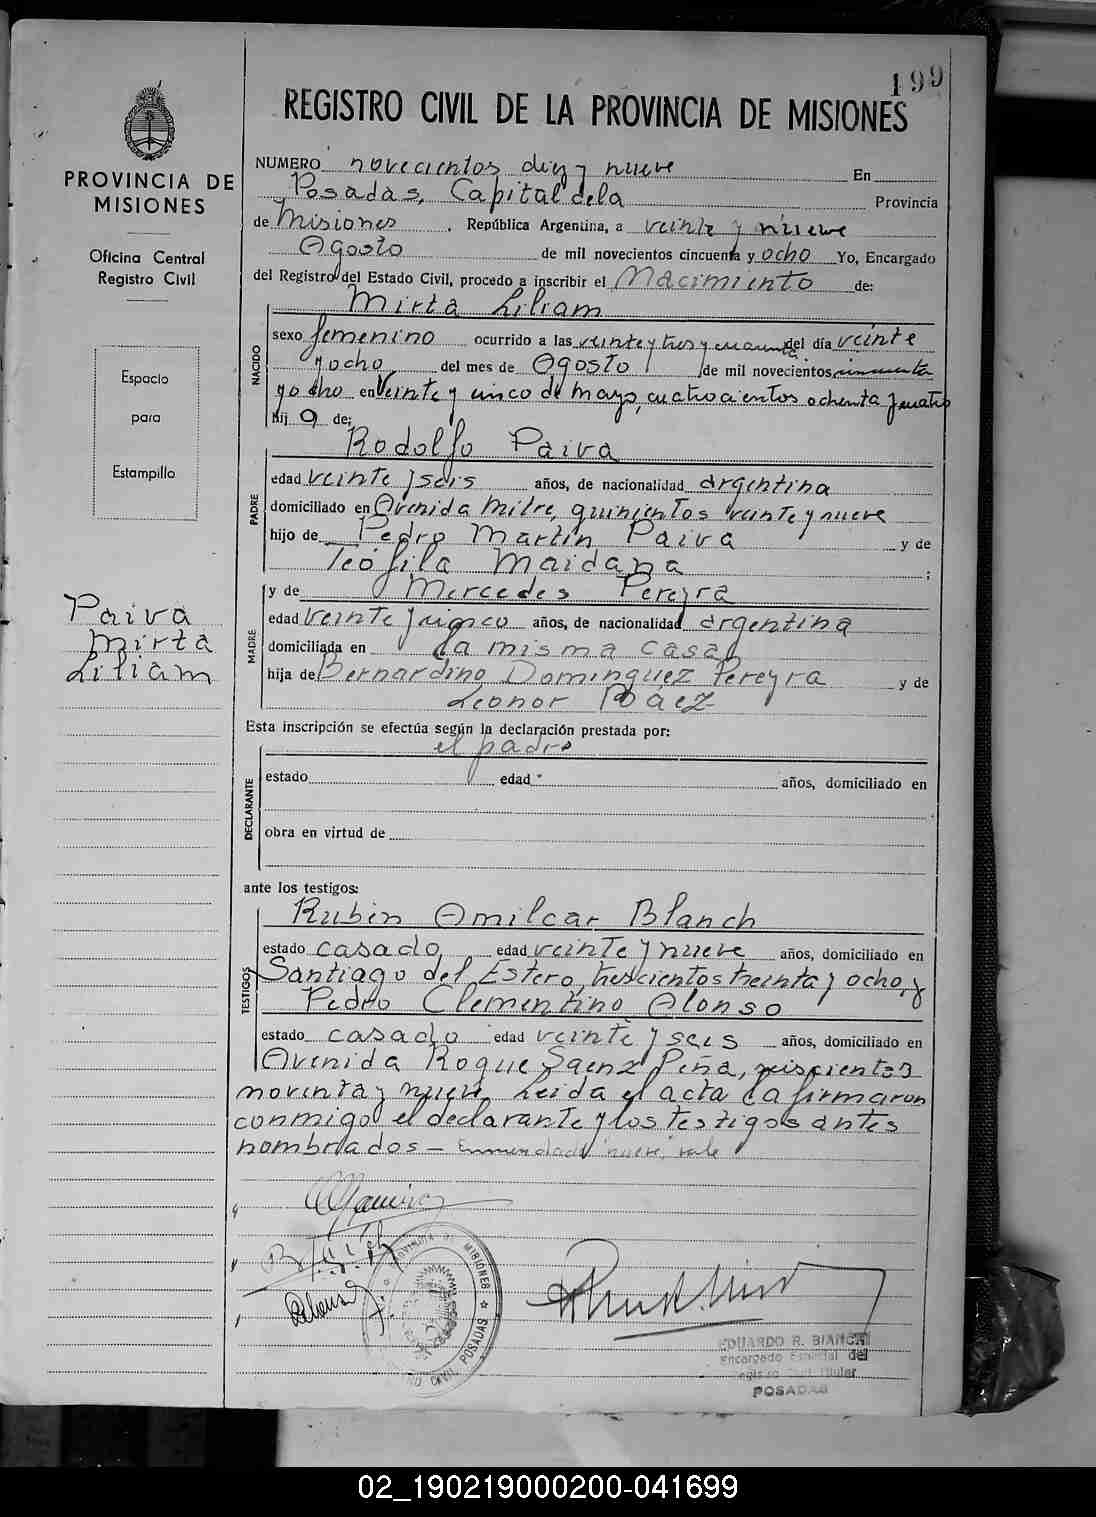 199
REGISTRO CIVIL DE LA PROVINCIA DE MISIONES
PROVINCIA DE
MISIONES
Oficina Central
Registro Civil
Espacio
para
Estampillo
Paiva
Mirta
Liliam
NUMERO novecientos diez y nueve En
Posadas, Capital de la Provincia
de Misiones, República Argentina, a veinte y nueve
Agosto de mil novecientos cincuenta y ocho Yo, Encargado
del Registro del Estado Civil, procedo a inscribir el Nacimiento de:
NACIDO
Mirta Liliam
sexo femenino ocurrido a las veinte y tres y cuarenta del día veinte
y ocho del mes de Agosto de mil novecientos cincuenta
y ocho en Veinte y cinco de Mayo, cuatrocientos ochenta y cuatro
hij a de:
PADRE
Rodolfo Paiva
edad veinte y seis años, de nacionalidad argentina
domiciliado en Avenida Mitre, quinientos veinte y nueve
hijo de Pedro Martin Paiva y de
Teófila Maidana ;
MADRE
y de Mercedes Pereyra
edad veinte y cinco años, de nacionalidad argentina
domiciliada en la misma casa
hija de Bernardino Dominguez Pereyra y de
Leonor Báez
Esta inscripción se efectúa según la declaración prestada por:
DECLARANTE
el padre
estado edad años, domiciliado en
obra en virtud de
ante los testigos:
TESTIGOS
Rubén Amilcar Blanch
estado casado edad veinte y nueve años, domiciliado en
Santiago del Estero, trescientos treinta y ocho, y
Pedro Clementino Alonso
estado casado edad veinte y seis años, domiciliado en
Avenida Roque Saenz Peña, seiscientos
noventa y nueve. Leida el acta la firmaron
conmigo el declarante y los testigos antes
nombrados — Enmendado nueve, vale
PROVINCIA DE MISIONES
CIVIL POSADAS
EDUARDO R. BIANCHI
Encargado del
Registro Civil Titular
POSADAS
02_190219000200-041699